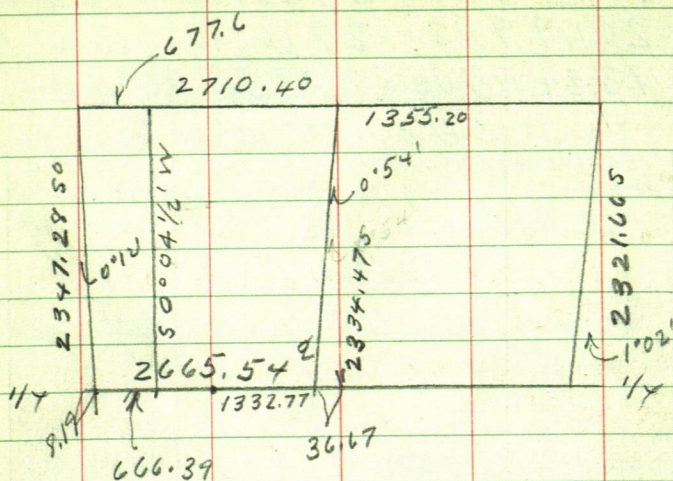 677.6
2710.40
1355.20
2347.2850
0°12'
S 0°04 1/2' W
0°54'
2334.475
2321.665
1°02'
2665.54
1/4
1332.77
1/4
8.19
666.39
36.67